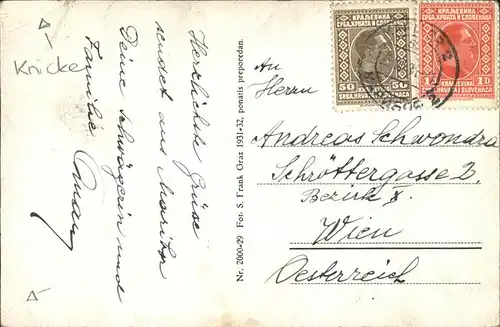 Knicke
Herzlichste Grüsse
sendet aus Maribor
Deine Schwägerin und
Familie
Nr. 2000-29 Fot. S. Frank, Graz 1931-32, ponatis preporedan.
КРАЉЕВИНА
СРБА, ХРВАТА И СЛОВЕНАЦА
50 50
КРАЉЕВИНА
СРБА, ХРВАТА И СЛОВЕНАЦА
1Д 1D
KRALJEVINA
SRBA, HRVATA I SLOVENACA
An
Herrn
Andreas Schwondra
Schröttergasse 2,
Bezirk X.
Wien
Oesterreich